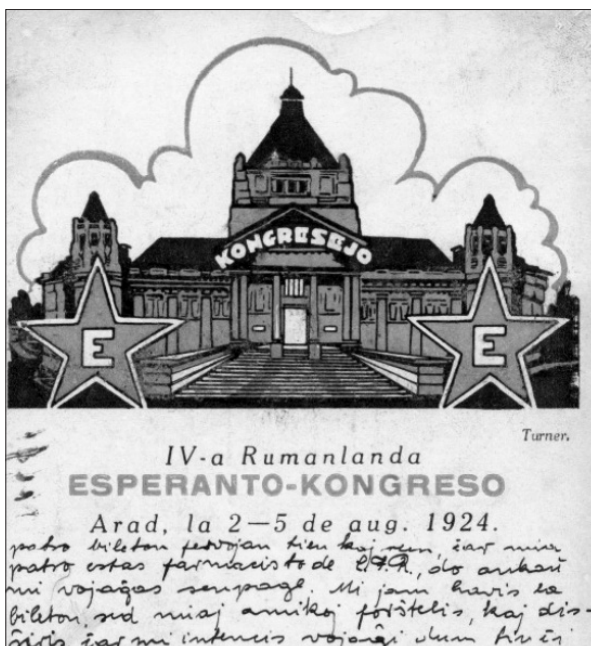 KONGRESEJO
E
E
Turner.
IV-a Rumanlanda
ESPERANTO-KONGRESO
Arad, la 2—5 de aug. 1924.
patro bileton fervojan tien kaj ree, ĉar mia
patro estas farmacisto de C.F.R., do ankaŭ
mi vojaĝas senpage. Mi jam havis la
bileton, sed miaj amikoj forŝtelis, kaj dis-
ŝiris ĉar mi intencis vojaĝi dum